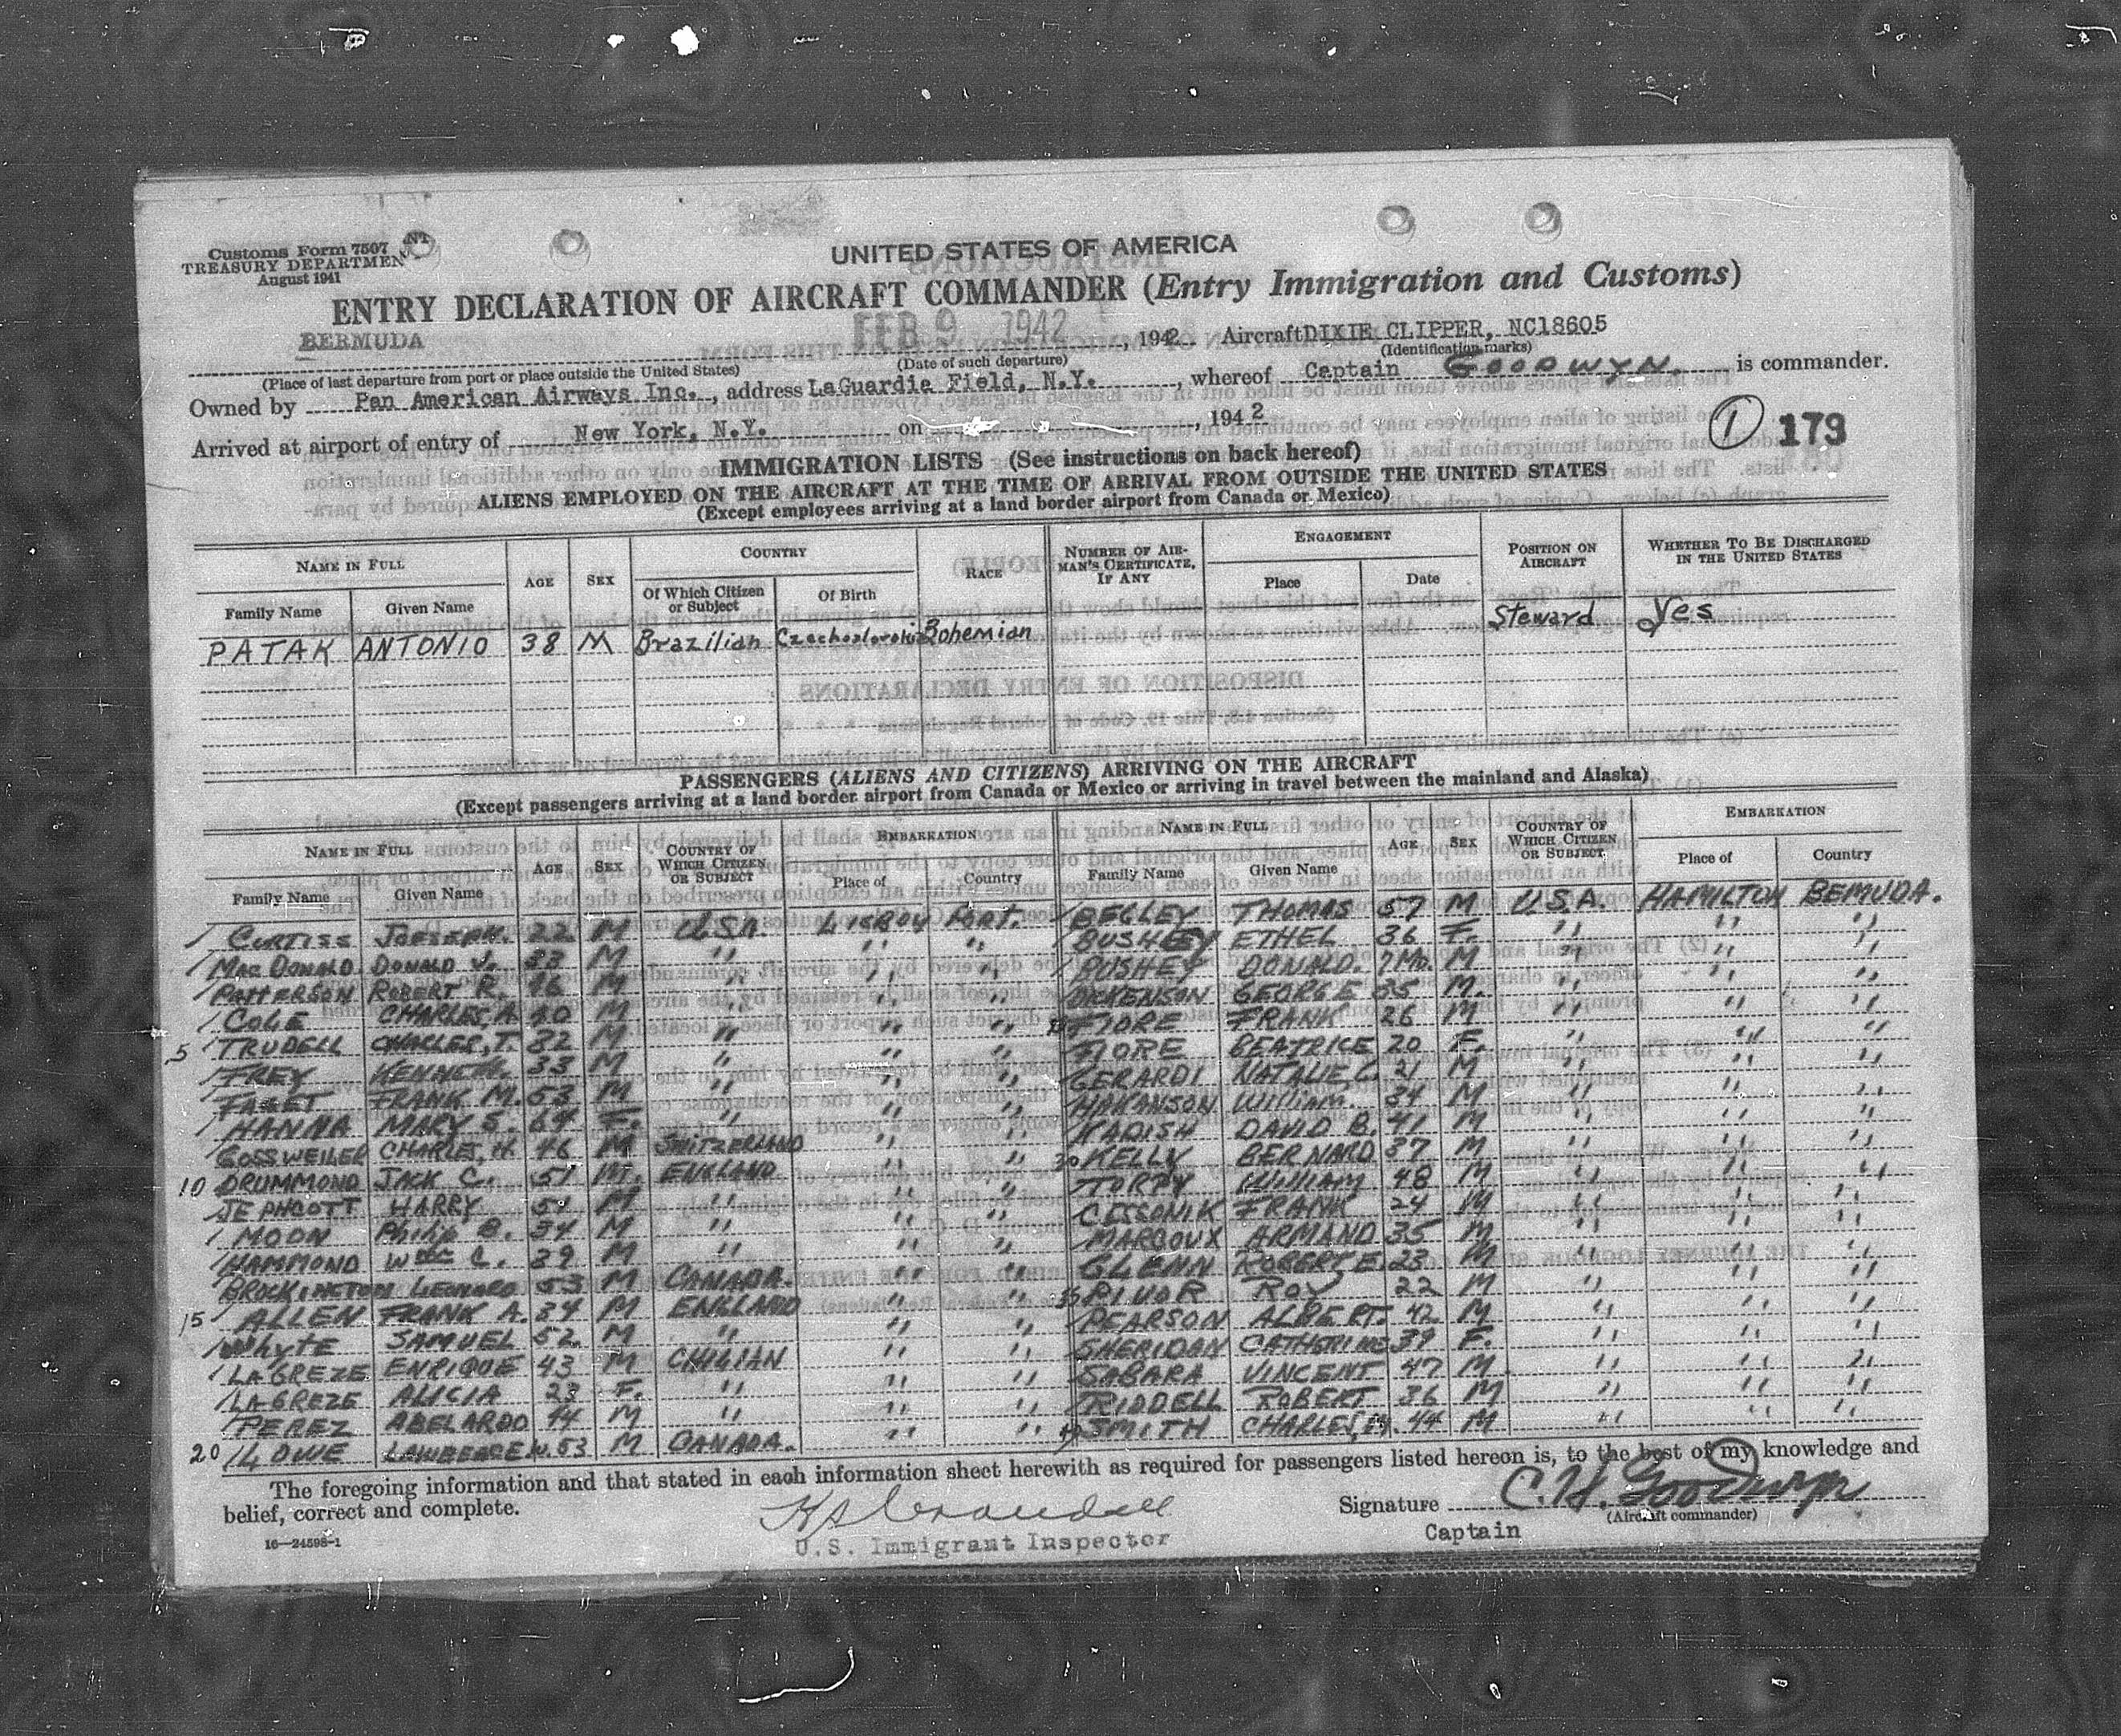 Customs Form 7507
TREASURY DEPARTMENT
August 1941
UNITED STATES OF AMERICA
ENTRY DECLARATION OF AIRCRAFT COMMANDER (Entry Immigration and Customs)
BERMUDA FEB 9 1942, 1942 Aircraft DIXIE CLIPPER, NC18605
(Place of last departure from port or place outside the United States) (Date of such departure) (Identification marks)
Owned by Pan American Airways Inc., address LaGuardia Field, N.Y., whereof Captain GOODWYN. is commander.
Arrived at airport of entry of New York, N.Y. on , 1942
1 179
IMMIGRATION LISTS (See instructions on back hereof)
ALIENS EMPLOYED ON THE AIRCRAFT AT THE TIME OF ARRIVAL FROM OUTSIDE THE UNITED STATES
(Except employees arriving at a land border airport from Canada or Mexico)
NAME IN FULL AGE SEX COUNTRY RACE NUMBER OF AIRMAN'S CERTIFICATE, IF ANY ENGAGEMENT POSITION ON AIRCRAFT WHETHER TO BE DISCHARGED IN THE UNITED STATES
Family Name Given Name Of Which Citizen or Subject Of Birth Place Date
PATAK ANTONIO 38 M Brazilian Czechoslovakia Bohemian Steward Yes
PASSENGERS (ALIENS AND CITIZENS) ARRIVING ON THE AIRCRAFT
(Except passengers arriving at a land border airport from Canada or Mexico or arriving in travel between the mainland and Alaska)
NAME IN FULL AGE SEX COUNTRY OF WHICH CITIZEN OR SUBJECT EMBARKATION NAME IN FULL AGE SEX COUNTRY OF WHICH CITIZEN OR SUBJECT EMBARKATION
Family Name Given Name Place of Country Family Name Given Name Place of Country
CURTISS JOESEPH. 22 M U.S.A. LISBON PORT. BEGLEY THOMAS 57 M U.S.A. HAMILTON BEMUDA.
MAC DONALD DONALD J. 33 M " " " BUSHEY ETHEL 36 F. " " "
PATTERSON ROBERT R. M " " " BUSHEY DONALD. 7 Mo. M " " "
COLE CHARLES, A. 40 M " " " DICKENSON GEORGE 35 M. " " "
5 TRUDELL CHARLES, T. 32 M " " " FIORE FRANK 26 M " " "
FREY KENNETH. 33 M " " " FIORE BEATRICE 20 F. " " "
FAGET FRANK M. 53 M " " " GERARDI NATALIE, C. 21 M " " "
HANNA MARY S. 64 F. " " " HAKANSON William. 34 M " " "
GOSSWEILER CHARLES, H. 46 M SWITZERLAND " " KADISH DAVID B. 41 M " " "
10 DRUMMOND JACK C. 51 M. ENGLAND " " 30 KELLY BERNARD 37 M " " "
JEPHCOTT HARRY 51 M " " " TORPY William 48 M " " "
MOON Philip B. 34 M " " " CESSONIK FRANK 24 M " " "
HAMMOND Wm C. 39 M " " " MARCOUX ARMAND 35 M " " "
BROCKINGTON LEONARD 53 M CANADA. " " GLENN ROBERT E. 23 M " " "
15 ALLEN FRANK A. 34 M ENGLAND " " 35 PIVOR ROY 22 M " " "
Whyte SAMUEL 52. M " " " PEARSON ALBERT. 42 M " " "
LAGREZE ENRIQUE 43 M CHILIAN " " SHERIDAN CATHERINE 39 F. " " "
LAGREZE ALICIA 23 F. " " " SABARA VINCENT 47 M " " "
PEREZ ABELARDO 44 M " " " RIDDELL ROBERT 36 M " " "
20 LOWE LAWRENCE W. 53 M CANADA. " " 40 SMITH CHARLES, M. 44 M " " "
The foregoing information and that stated in each information sheet herewith as required for passengers listed hereon is, to the best of my knowledge and
belief, correct and complete.
Signature C. H. Goodwyn
(Aircraft commander)
Captain
U.S. Immigrant Inspector
16—24598-1